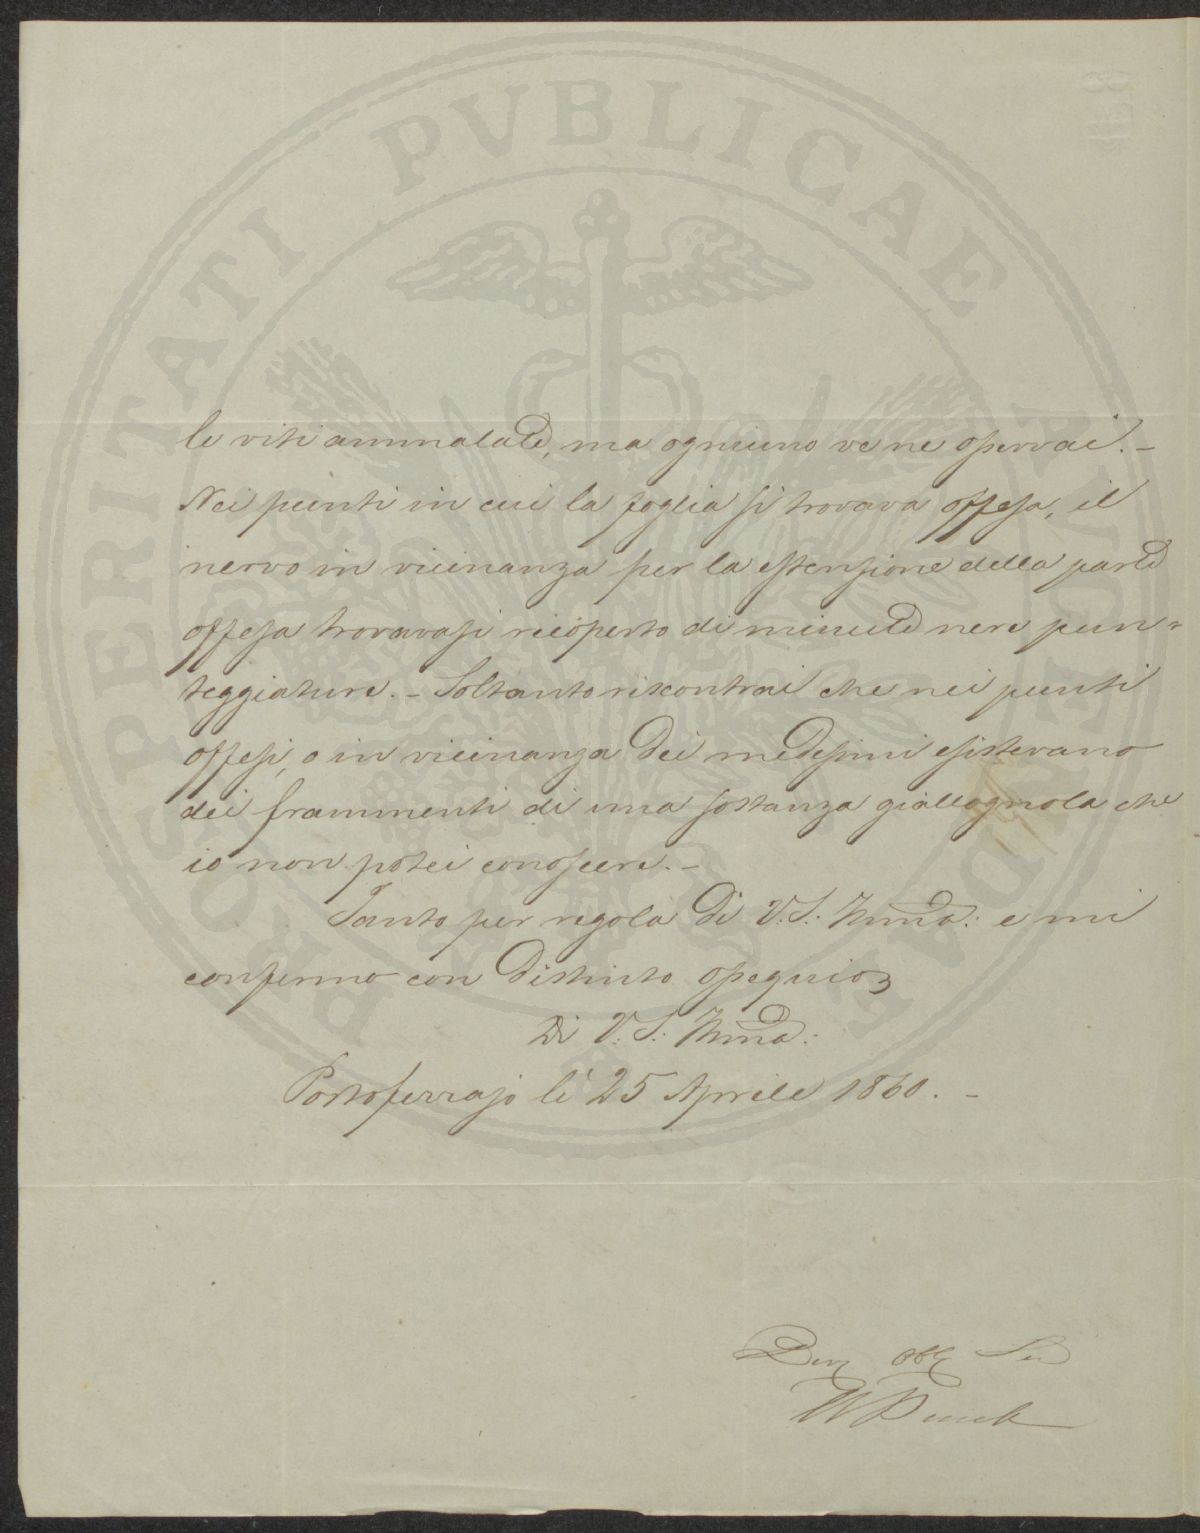 PROSPERITATI PVBLICAE AVGENDAE
le viti ammalate, ma ogniuno ve ne osservai.-
Nei punti in cui la foglia si trovava offesa, il
nervo in vicinanza per la estensione della parte
offesa trovavasi ricoperto di minute nere pun-
teggiature.- Soltanto riscontrai che nei punti
offesi, o in vicinanza dei medesimi esistevano
dei frammenti di una sostanza giallognola che
io non potei conoscere.-
Tanto per regola di V.S. Illma: e mi
confermo con distinto ossequio
Di V.S. Illma:
Portoferrajo li 25 Aprile 1860.-
Dev Obb Ser